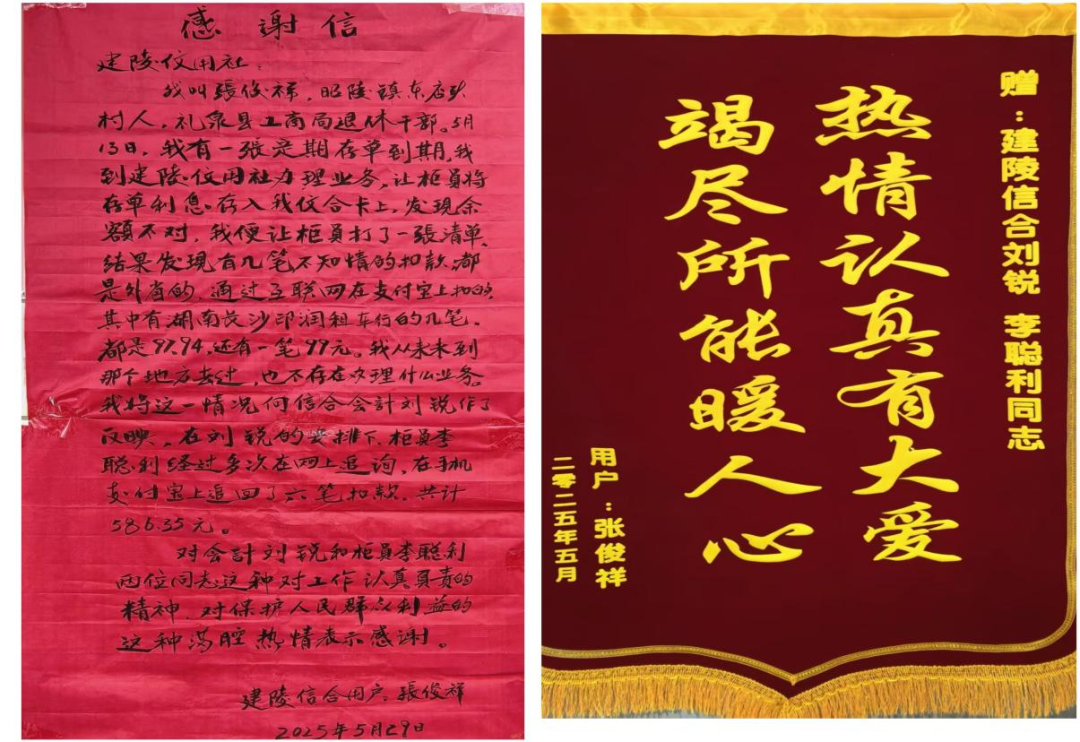 感谢信
建陵信用社：
我叫張俊祥，昭陵鎮东店头
村人，礼泉县工商局退休干部。5月
13日，我有一张定期存单到期，我
到建陵信用社办理业务，让柜員将
存单利息存入我信合卡上，发现余
額不对，我便让柜員打了一張清单，
结果发现有几笔不知情的扣款，都
是外省的，通过互联网在支付宝上扣的
其中有湖南长沙印润租车行的几笔，
都是97.94，还有一笔99元。我从来未到
那个地方去过，也不存在办理什么业务。
我将这一情况向信合会計刘锐作了
反映，在刘锐的安排下，柜員李
聪利经过多次在网上追询，在手机
支付宝上追回了六笔扣款，共计
586.35元。
对会計刘锐和柜員李聪利
两位同志这种对工作认真負責的
精神，对保护人民群众利益的
这种满腔热情表示感谢。
建陵信合用户：張俊祥
2025年5月29日
赠：建陵信合刘锐 李聪利同志
热情认真有大爱
竭尽所能暖人心
用户：张俊祥
二零二五年五月